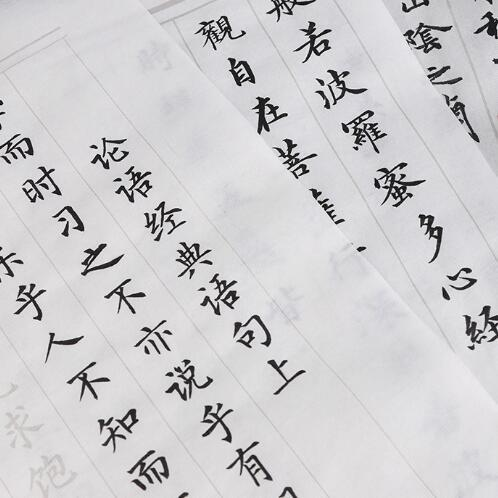 山陰之
般若波羅蜜多心経
觀自在菩
论语经典语句上
而时习之不亦说乎有
乐乎人不知而
求饱